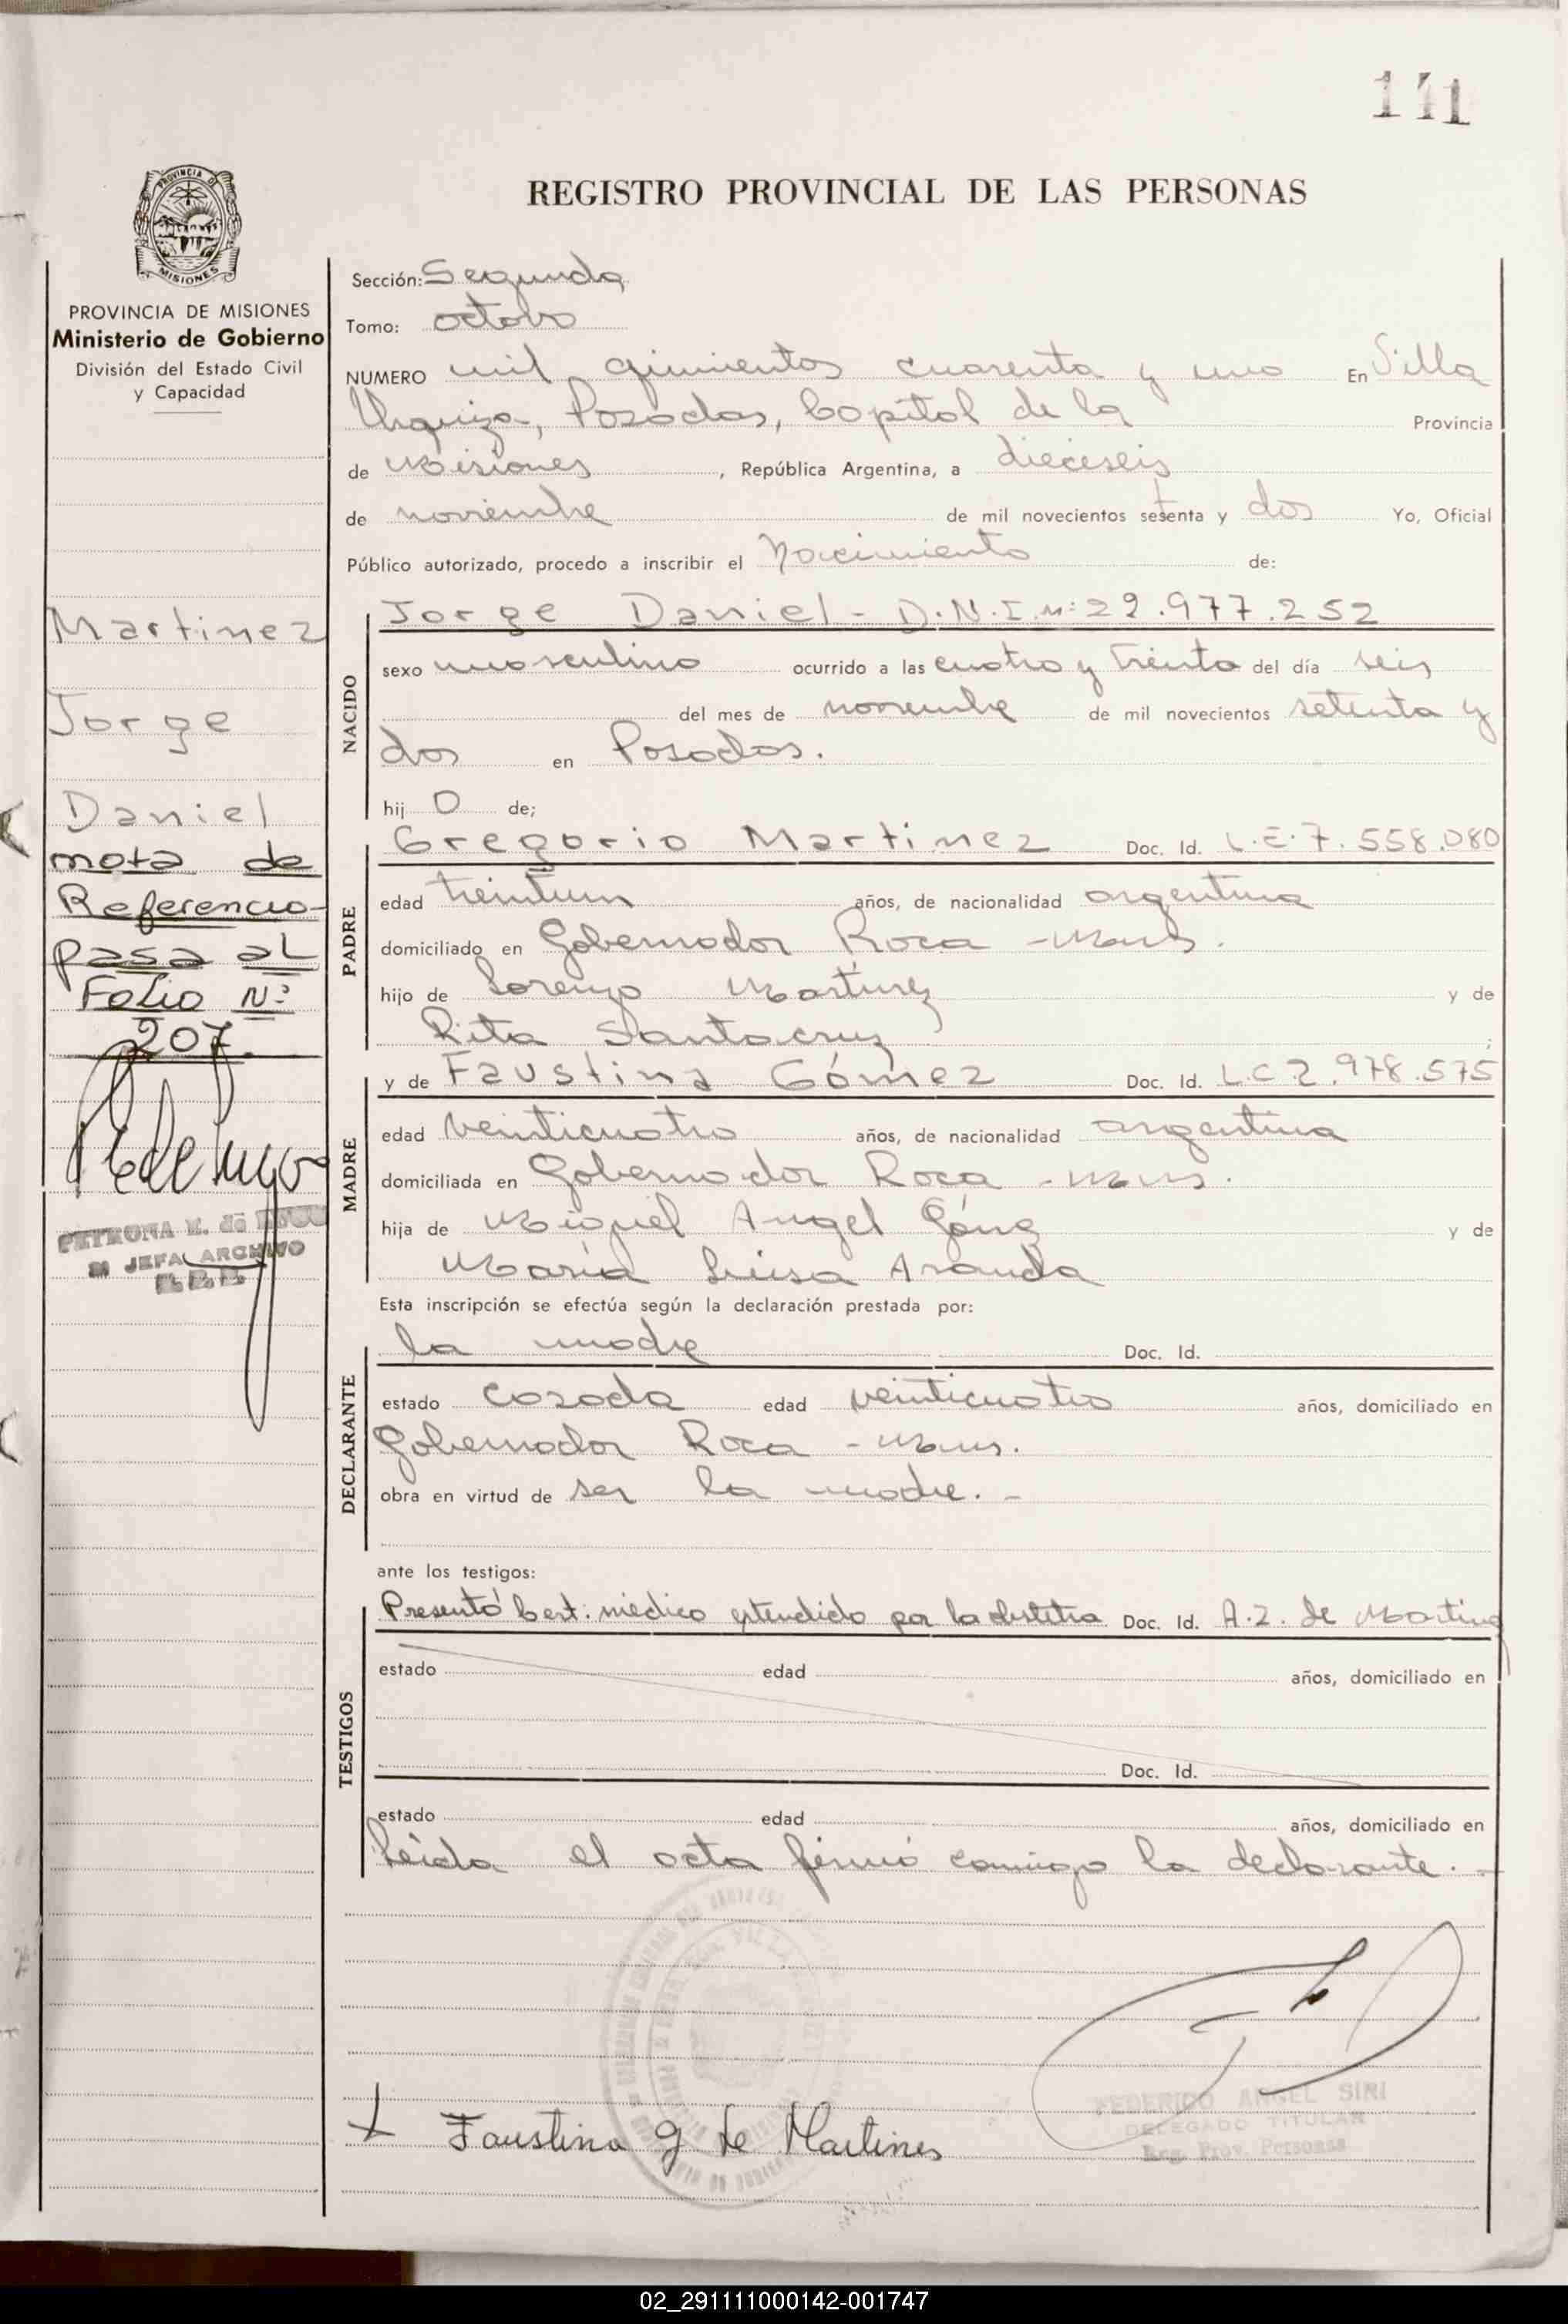 111
REGISTRO PROVINCIAL DE LAS PERSONAS
PROVINCIA DE MISIONES
Ministerio de Gobierno
División del Estado Civil
y Capacidad
Martinez
Jorge
Daniel
nota de
Referencia
pasa al
Folio Nº
207.
PETRONA E. de
JEFA ARCHIVO
Sección: Segunda
Tomo: octavo
NUMERO mil quinientos cuarenta y uno En Villa
Urquiza, Posadas, Capital de la Provincia
de Misiones, República Argentina, a dieciseis
de noviembre de mil novecientos setenta y dos Yo, Oficial
Público autorizado, procedo a inscribir el Nacimiento de:
NACIDO
Jorge Daniel - D.N.I.Nº: 22.977.252
sexo masculino ocurrido a las cuatro y treinta del día seis
del mes de noviembre de mil novecientos setenta y
dos en Posadas.
hij o de;
PADRE
Gregorio Martinez Doc. Id. L.E. 7.558.080
edad treintiun años, de nacionalidad argentina
domiciliado en Gobernador Roca - Mnes.
hijo de Lorenzo Martinez y de
Rita Santacruz ;
MADRE
y de Faustina Gómez Doc. Id. L.C 2.978.575
edad veinticuatro años, de nacionalidad argentina
domiciliada en Gobernador Roca - Mnes.
hija de Miguel Angel Gómez y de
María Luisa Aranda
Esta inscripción se efectúa según la declaración prestada por:
DECLARANTE
la madre Doc. Id.
estado casada edad veinticuatro años, domiciliado en
Gobernador Roca - Mnes.
obra en virtud de ser la madre. -
ante los testigos:
TESTIGOS
Presentó Cert. médico extendido por la obstetra Doc. Id. A.Z. de Martinez
estado edad años, domiciliado en
Doc. Id.
estado edad años, domiciliado en
Leida el acta firmó conmigo la declarante. -
FEDERICO ANGEL SIRI
DELEGADO TITULAR
Reg. Prov. Personas
Faustina g de Martines
02_291111000142-001747